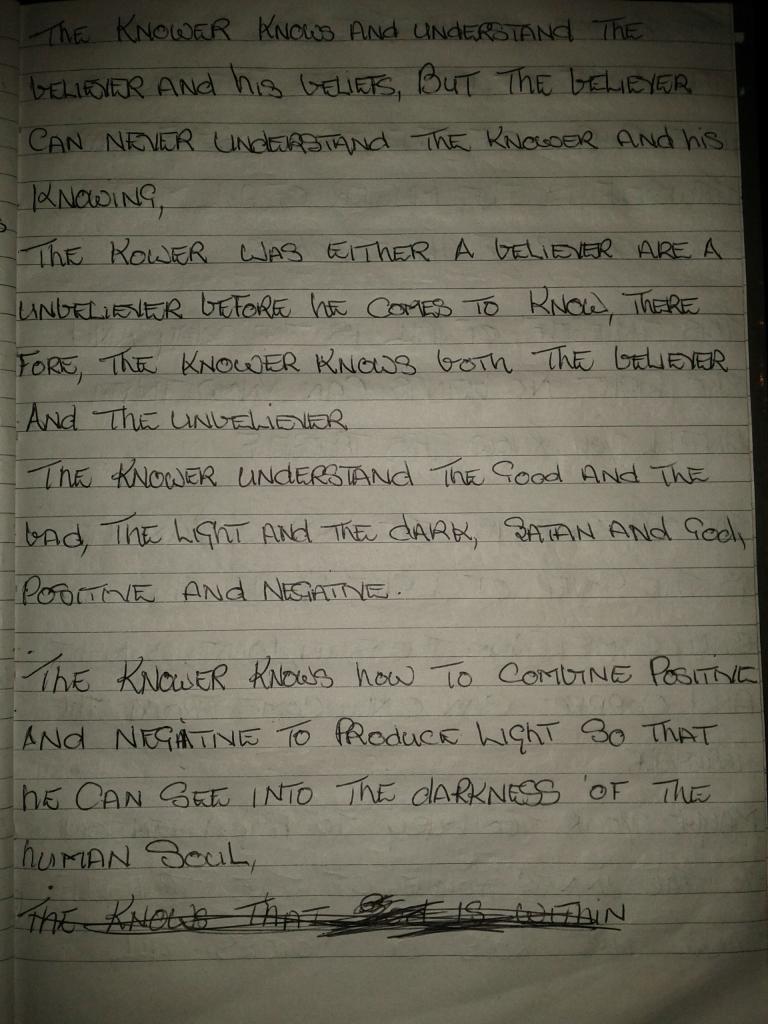 The KNOWER KNOWS AND UNDERSTAND THE
BELIEVER AND his BELIEFS, BUT THE BELIEVER
CAN NEVER UNDERSTAND THE KNOWER AND his
KNOWING,
The KOWER WAS EITHER A BELIEVER ARE A
UNBELIEVER BEFORE he COMES TO KNOW, THERE
FORE, THE KNOWER KNOWS BOTH THE BELIEVER
AND THE UNBELIEVER
The KNOWER UNDERSTAND THE Good AND THE
BAD, THE LIGHT AND THE dARK, SATAN AND God,
POSITIVE AND NEGATIVE.
The KNOWER KNOWS how TO COMBINE POSITIVE
AND NEGATIVE TO PRODUCE LIGHT SO THAT
he CAN SEE INTO THE dARKNESS OF THE
hUMAN SOUL,
THE KNOWS THAT God IS WITHIN